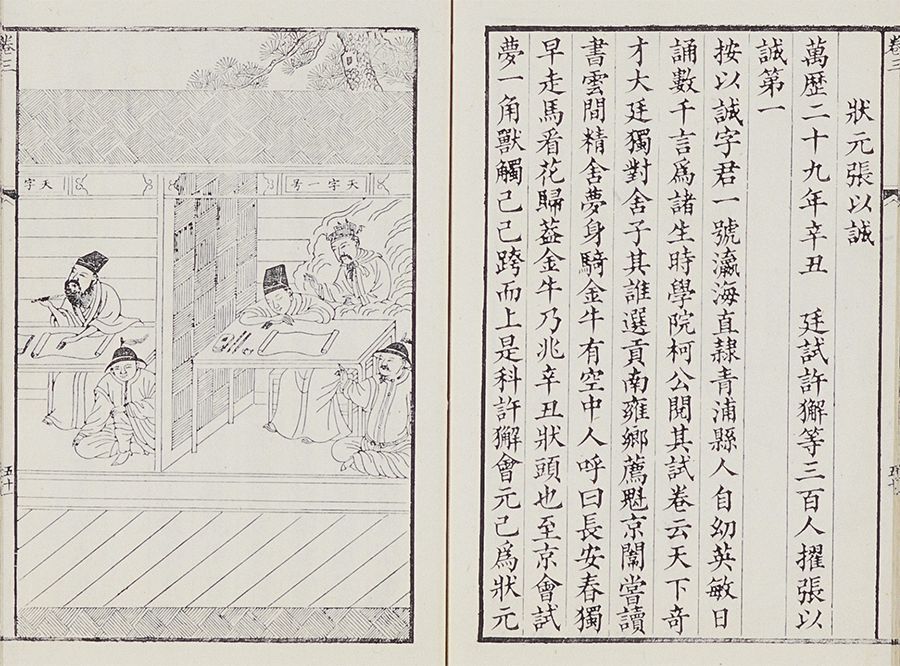 卷三
狀元張以誠
萬歷二十九年辛丑 廷試許獬等三百人擢張以
誠第一
按以誠字君一號瀛海直隸青浦縣人自幼英敏日
誦數千言爲諸生時學院柯公閱其試卷云天下奇
才大廷獨對舍子其誰選貢南雍鄉薦魁京闈嘗讀
書雲間精舍夢身騎金牛有空中人呼曰長安春獨
早走馬看花歸葢金牛乃兆辛丑狀頭也至京會試
夢一角獸觸己己跨而上是科許獬會元己爲狀元
天字一号
天字
卷三
五十